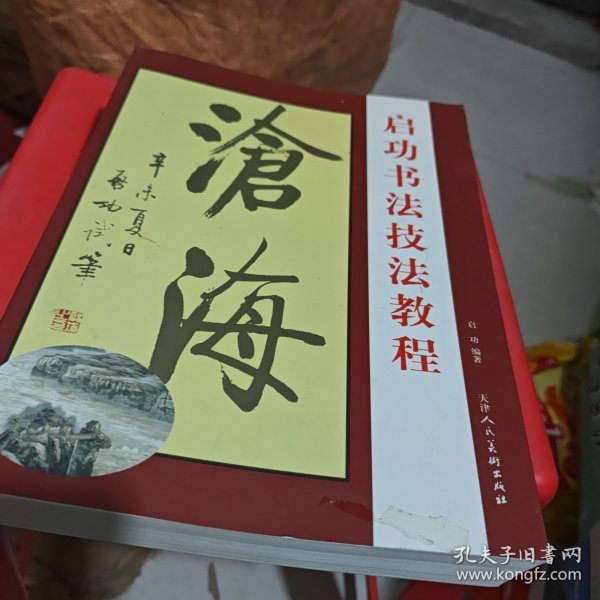 启功书法技法教程
滄海
辛未夏日
启功試筆
启功 编著
天津人民美術出版社
孔夫子旧书网
www.kongfz.com